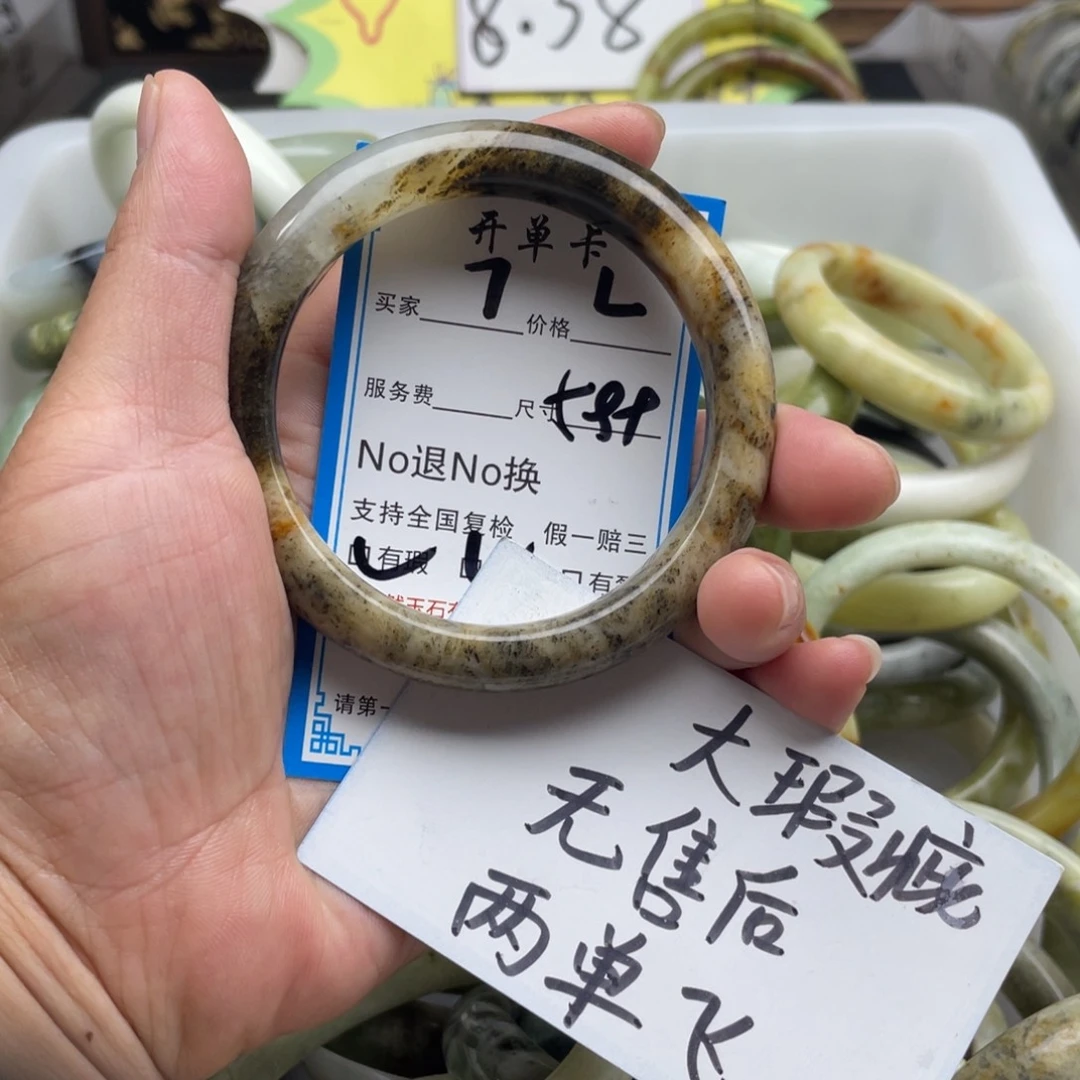 8.58
开单卡
7 L
买家 价格
服务费 尺寸
No退No换
支持全国复检 假一赔三
口有瑕
口有
然玉石
请第一
大瑕疵
无售后
两单飞